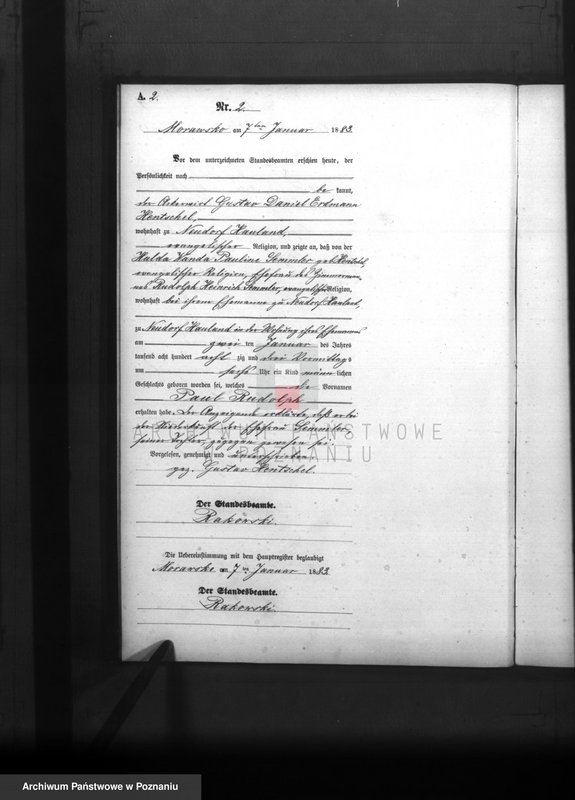 A. 2.
Nr. 2.
Morawsko am 7ten Januar 1883.
Vor dem unterzeichneten Standesbeamten erschien heute, der
Persönlichkeit nach
be kannt,
der Ackerwirt Gustav Daniel Erdmann
Hentschel,
wohnhaft zu Neudorf Hauland,
evangelischer Religion, und zeigte an, daß von der
Hulda Wanda Pauline Semmler geb. Hentschel,
evangelischer Religion, Ehefrau des Zimmerman-
nes Rudolph Heinrich Semmler, evangelischer Religion,
wohnhaft bei ihrem Ehemanne zu Neudorf Hauland,
zu Neudorf Hauland in der Wohnung ihres Ehemannes
am zwei ten Januar des Jahres
tausend acht hundert acht zig und drei Vormittags
um sechs Uhr ein Kind männ lichen
Geschlechts geboren worden sei, welches die Vornamen
Paul Rudolph
erhalten habe. Der Anzeigende erklärte, daß er bei
der Niederkunft der Ehefrau Semmler,
seiner Tochter, zugegen gewesen sei.
Vorgelesen, genehmigt und unterschrieben
gez. Gustav Hentschel.
ARCHIWUM PAŃSTWOWE
W POZNANIU
Der Standesbeamte.
Rakowski.
Die Uebereinstimmung mit dem Hauptregister beglaubigt
Morawsko am 7ten Januar 1883.
Der Standesbeamte.
Rakowski.
Archiwum Państwowe w Poznaniu